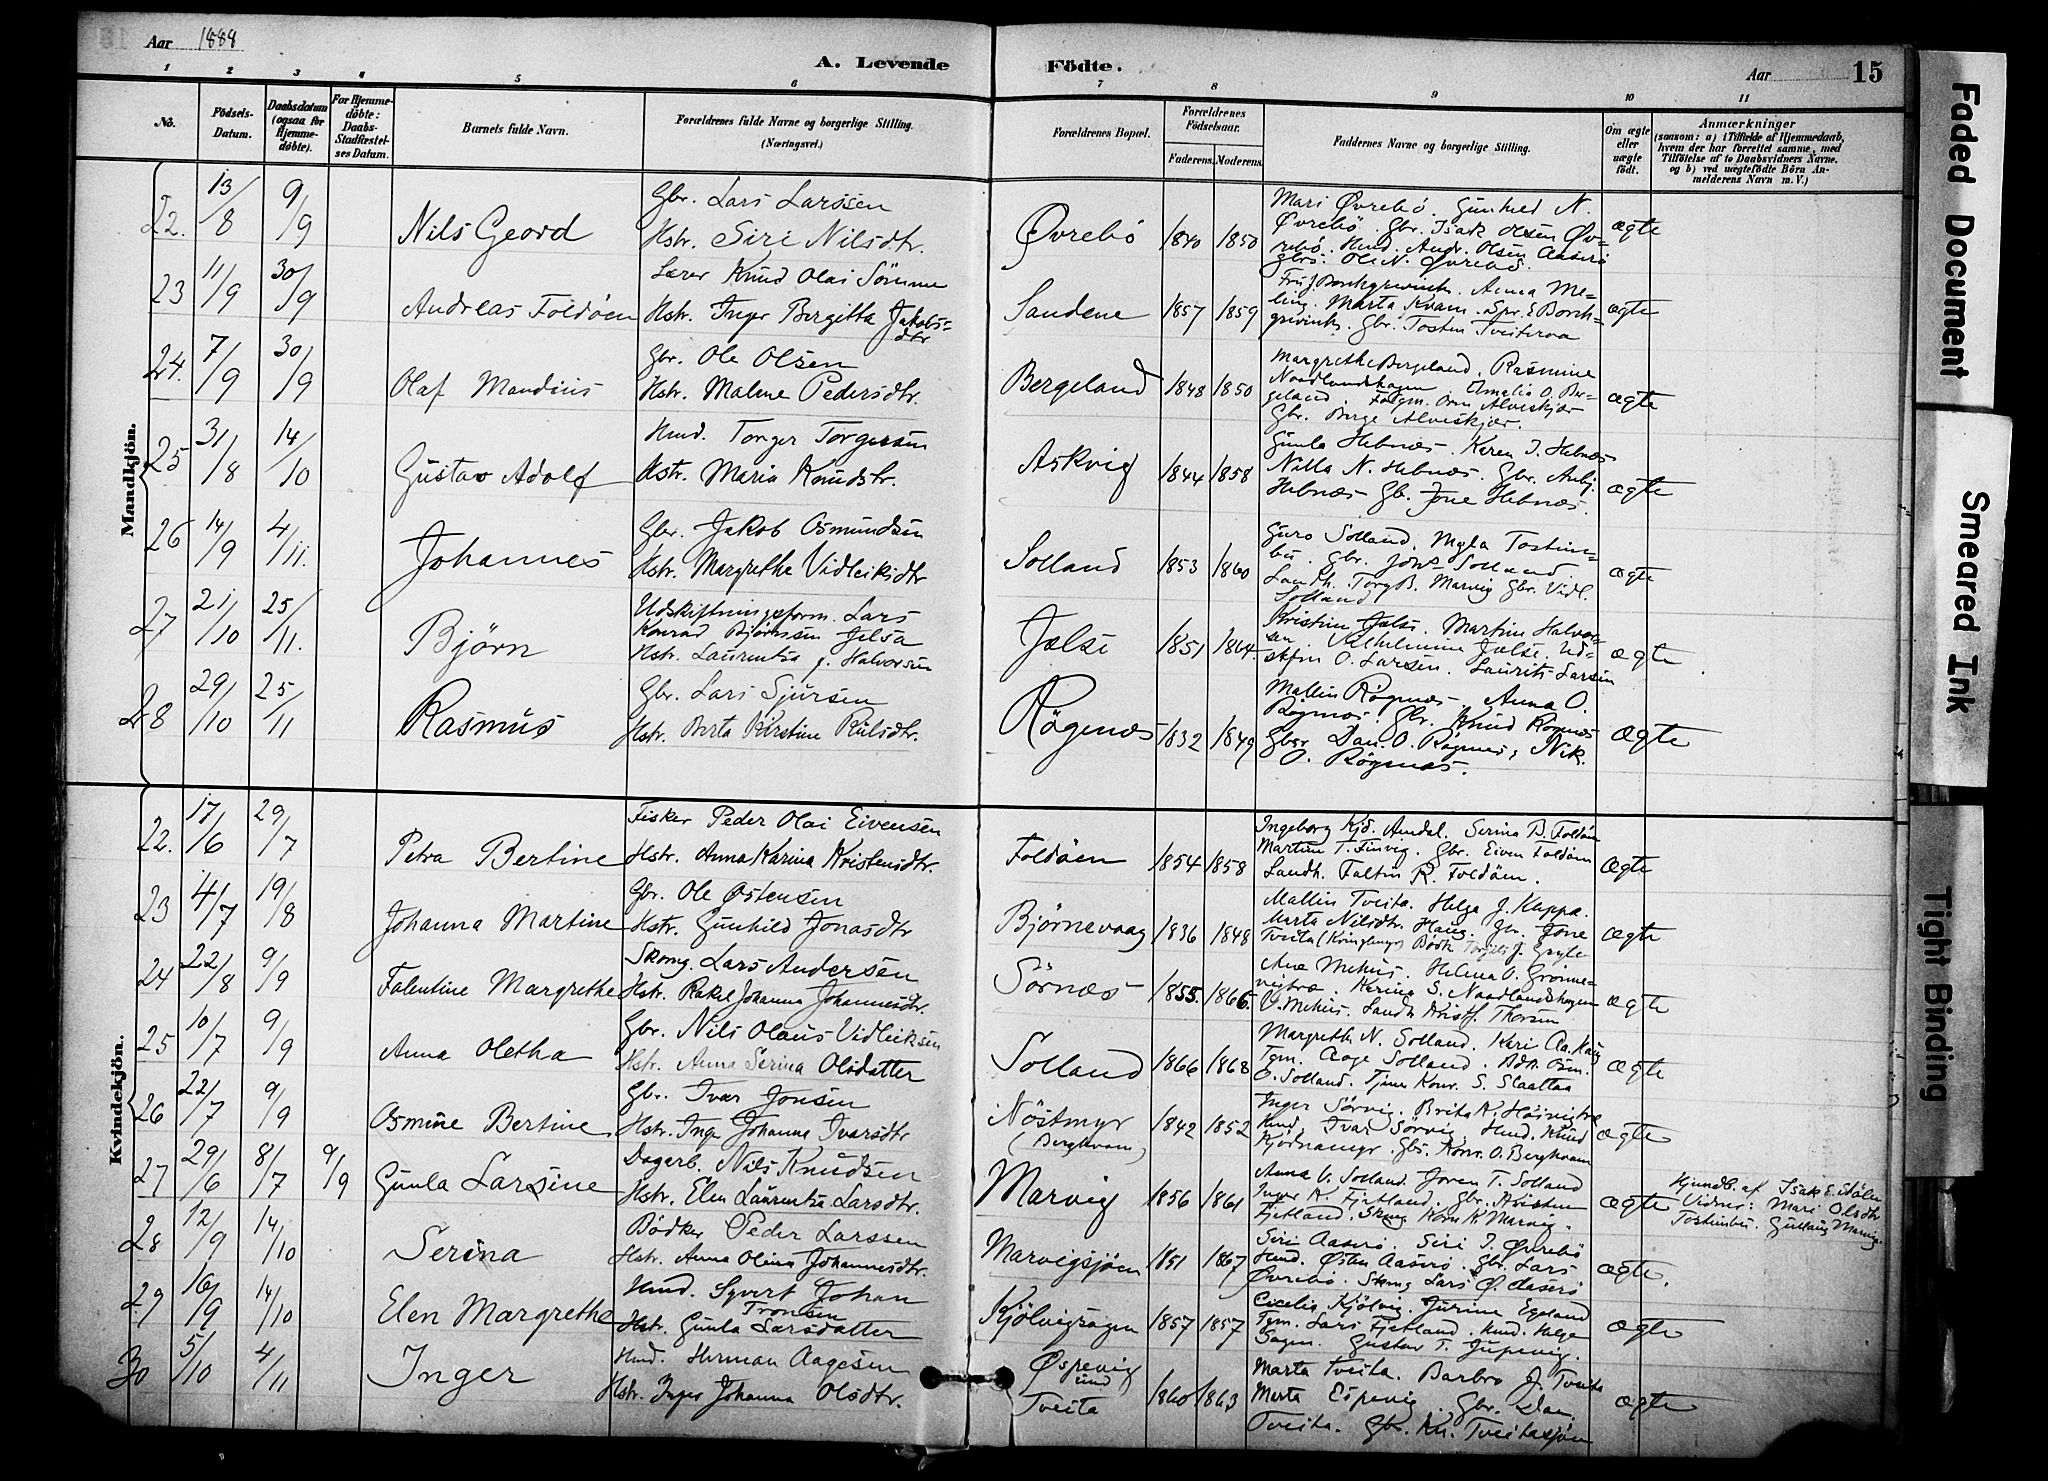 Aar 1888
A. Levende Födte.
Aar 15
1 2 3 4 5 6 7 8 9 10 11
No.
Födsels-Datum.
Daabsdatum (ogsaa for Hjemmedöbte).
For Hjemmedöbte: Daabs-Stadfæstelses Datum.
Barnets fulde Navn.
Forældrenes fulde Navne og borgerlige Stilling. (Næringsvei.)
Forældrenes Bopæl.
Forældrenes Födselsaar.
Faderens. Moderens.
Faddernes Navne og borgerlige Stilling.
Om ægte eller uægte födt.
Anmærkninger
(saasom: a) i Tilfælde af Hjemmedaab, hvem der har forrettet samme, med Tilföielse af to Daabsvidners Navne, og b) ved uægtefödte Börn Anmelderens Navn m. V.)
Mandkjön.
22. 13/8 9/9 Nils Geord
Gbr. Lars Larssen
Hstr. Siri Nilsdtr.
Øvrebö 1840 1850
Mari Øvrebö. Gunhild N.
Øvrebö. Gbr. Isak Olsen Øv-
rebö. Hmd. Andr. Olsen Aaserö
Gbr. Ole N. Øvrebö.
ægte
23 11/9 30/9 Andreas Foldöen
Lærer Knud Olai Sömme
Hstr. Inger Birgitta Jakobs-
dtr
Sandene 1857 1859
Anna Me-
ling. Marta Kvam. Spr. E Borch-
grevink. Gbr. Tosten Tveiteraa
ægte
24. 7/9 30/9 Olaf Mandius
Gbr. Ole Olsen
Hstr. Malene Pedersdtr.
Bergeland 1848 1850
Margrethe Bergeland. Rasmine
Naadlandshagen. Amalia O. Ber-
geland. Alveskjær
Gbr. Birge Alveskjær.
ægte
25 31/8 14/10 Gustav Adolf
Hmd. Torger Torgersen
Hstr. Maria Knudstr.
Askvig 1844 1858
Gunla Hebnæs. Karen I. Hebnæs
Nilla N. Hebnæs. Gbr. Anbj.
Hebnæs Gb. Jone Hebnæs.
ægte
26 14/9 4/11. Johannes
Gbr. Jakob Osmundsen
Hstr. Margrethe Vidleiksdtr
Solland 1853 1860
Guro Solland. Tostein-
bu. Gbr. Jons Solland.
Landh. Torg B. Marvig Gbr. Vidl.
Solland
ægte
27 21/10 25/11. Björn
Udskiftningsform. Lars
Konrad Björnssen Jelsa
Hstr. Laurentsa f. Halvorsen
Jælse 1851 1864.
Kristine Jælse. Martine Halvor-
sen Vilhelmine Jælse. Ud-
skfm O. Larsen. Laurits Larsen
ægte
28 29/10 25/11 Rasmus
Gbr. Lars Sjursen
Hstr. Berta Kirstine
Rögenæs 1832 1849
Mallin Rögenæs. Anna O.
Rögenæs. Gbr. Knud Rögenæs
Gbsr Dan. O. Rögenæs, Nik.
O. Rögenæs.
ægte
Kvindekjön.
22. 17/6 29/7 Petra Bertine
Fisker Peder Olai Eivensen
Hstr. Anna Karina Kristensdtr.
Foldöen 1854 1858
Ingeborg Kjd. Amdal. Serina B. Foldöen
Martine T. Finvig. Gbr. Eiven Foldöen
Landh. Faltin R. Foldöen.
ægte
23 4/7 19/8 Johanna Martine
Gbr. Ole Østensen
Hstr. Gunhild Jonasdtr
Björnevaag 1836 1848
Mallin Tveita. Helga J. Kappa.
Marta Nilsdtr. Haug. Gbr. Jone
Tveita
ægte
24 22/8 9/9 Falentine Margrethe
Skomg. Lars Andersen
Hstr. Rakel Johanna Johannesdtr.
Sörnæs 1855. 1866.
Ane Mehus. Helena O. Grönne-
vigbræ. Karina S. Naadlandshagen
O. Mehus. Landh Kristf. Thorsen
ægte
25 10/7 9/9 Anna Oletha
Gbr. Nils Olaus Vidleiksen
Hstr. Anna Serina Olsdatter
Solland 1866 1868
Margrethe N. Solland. Kari Aa. Haug
Tgm. Aage Solland.
O. Solland. Tjener Konr. S. Slaattaa
ægte
26 22/7 9/9 Osmine Bertine.
Gbr. Ivar Jonsen
Hstr. Inga Johanna Ivarsdtr
Nöstmyr
(Berghvam) 1842 1852
Inger Sörvig. Brita K. Höivigbre
Hmd. Ivar Sörvig Hmd. Knud
Kjödnamyr. Gbs. Konr. O. Berghvam
ægte
27 29/6 8/7 9/9 Gunla Larsine
Dagarb. Nils Knudsen
Hstr. Elen Laurentsa Larsdtr.
Marvig 1856 1861
Anna V. Solland. Joren T. Solland
Inger K. Fjetland. Gbr. Kristen
Fjetland. Skmg Korn K Marvig.
ægte
Hjmdb. af Isak E. Stölen
Vidner: Mari Olsdtr
Tosteinbu. Gustav Marvig.
28 12/9 14/10 Serina
Bödker Peder Larssen
Hstr. Anna Olina Johannesdtr.
Marvigsjöen 1851 1867
Siri Aaserö. Siri I. Øvrebö
Hmd. Østen Aaserö. Gbr. Lars
Øvrebö. Skmg Lars Ø. Aaserö
ægte.
29 16/9 14/10 Elen Margrethe
Hmd. Syvert Johan
Tronsen
Hstr. Gunla Larsdatter
Kjölvigsagen 1857 1857
Cicelia Kjölvig. Jurine Egeland
Tgm. Lars Fjetland. Hmd. Helge
Sagen. Gustav T. Jupevig.
ægte
30 5/10 4/11 Inger
Hmd. Herman Aagesen
Hstr. Inger Johanna Olsdtr.
Øspevig
und
Tveita 1860 1863
Marta Tveita. Barbro J. Tveita
Marta Espevig. Gbr. Dan.
Tveita. Gbr. Kn. Tveitasjöen
ægte
Faded Document
Smeared Ink
Tight Binding